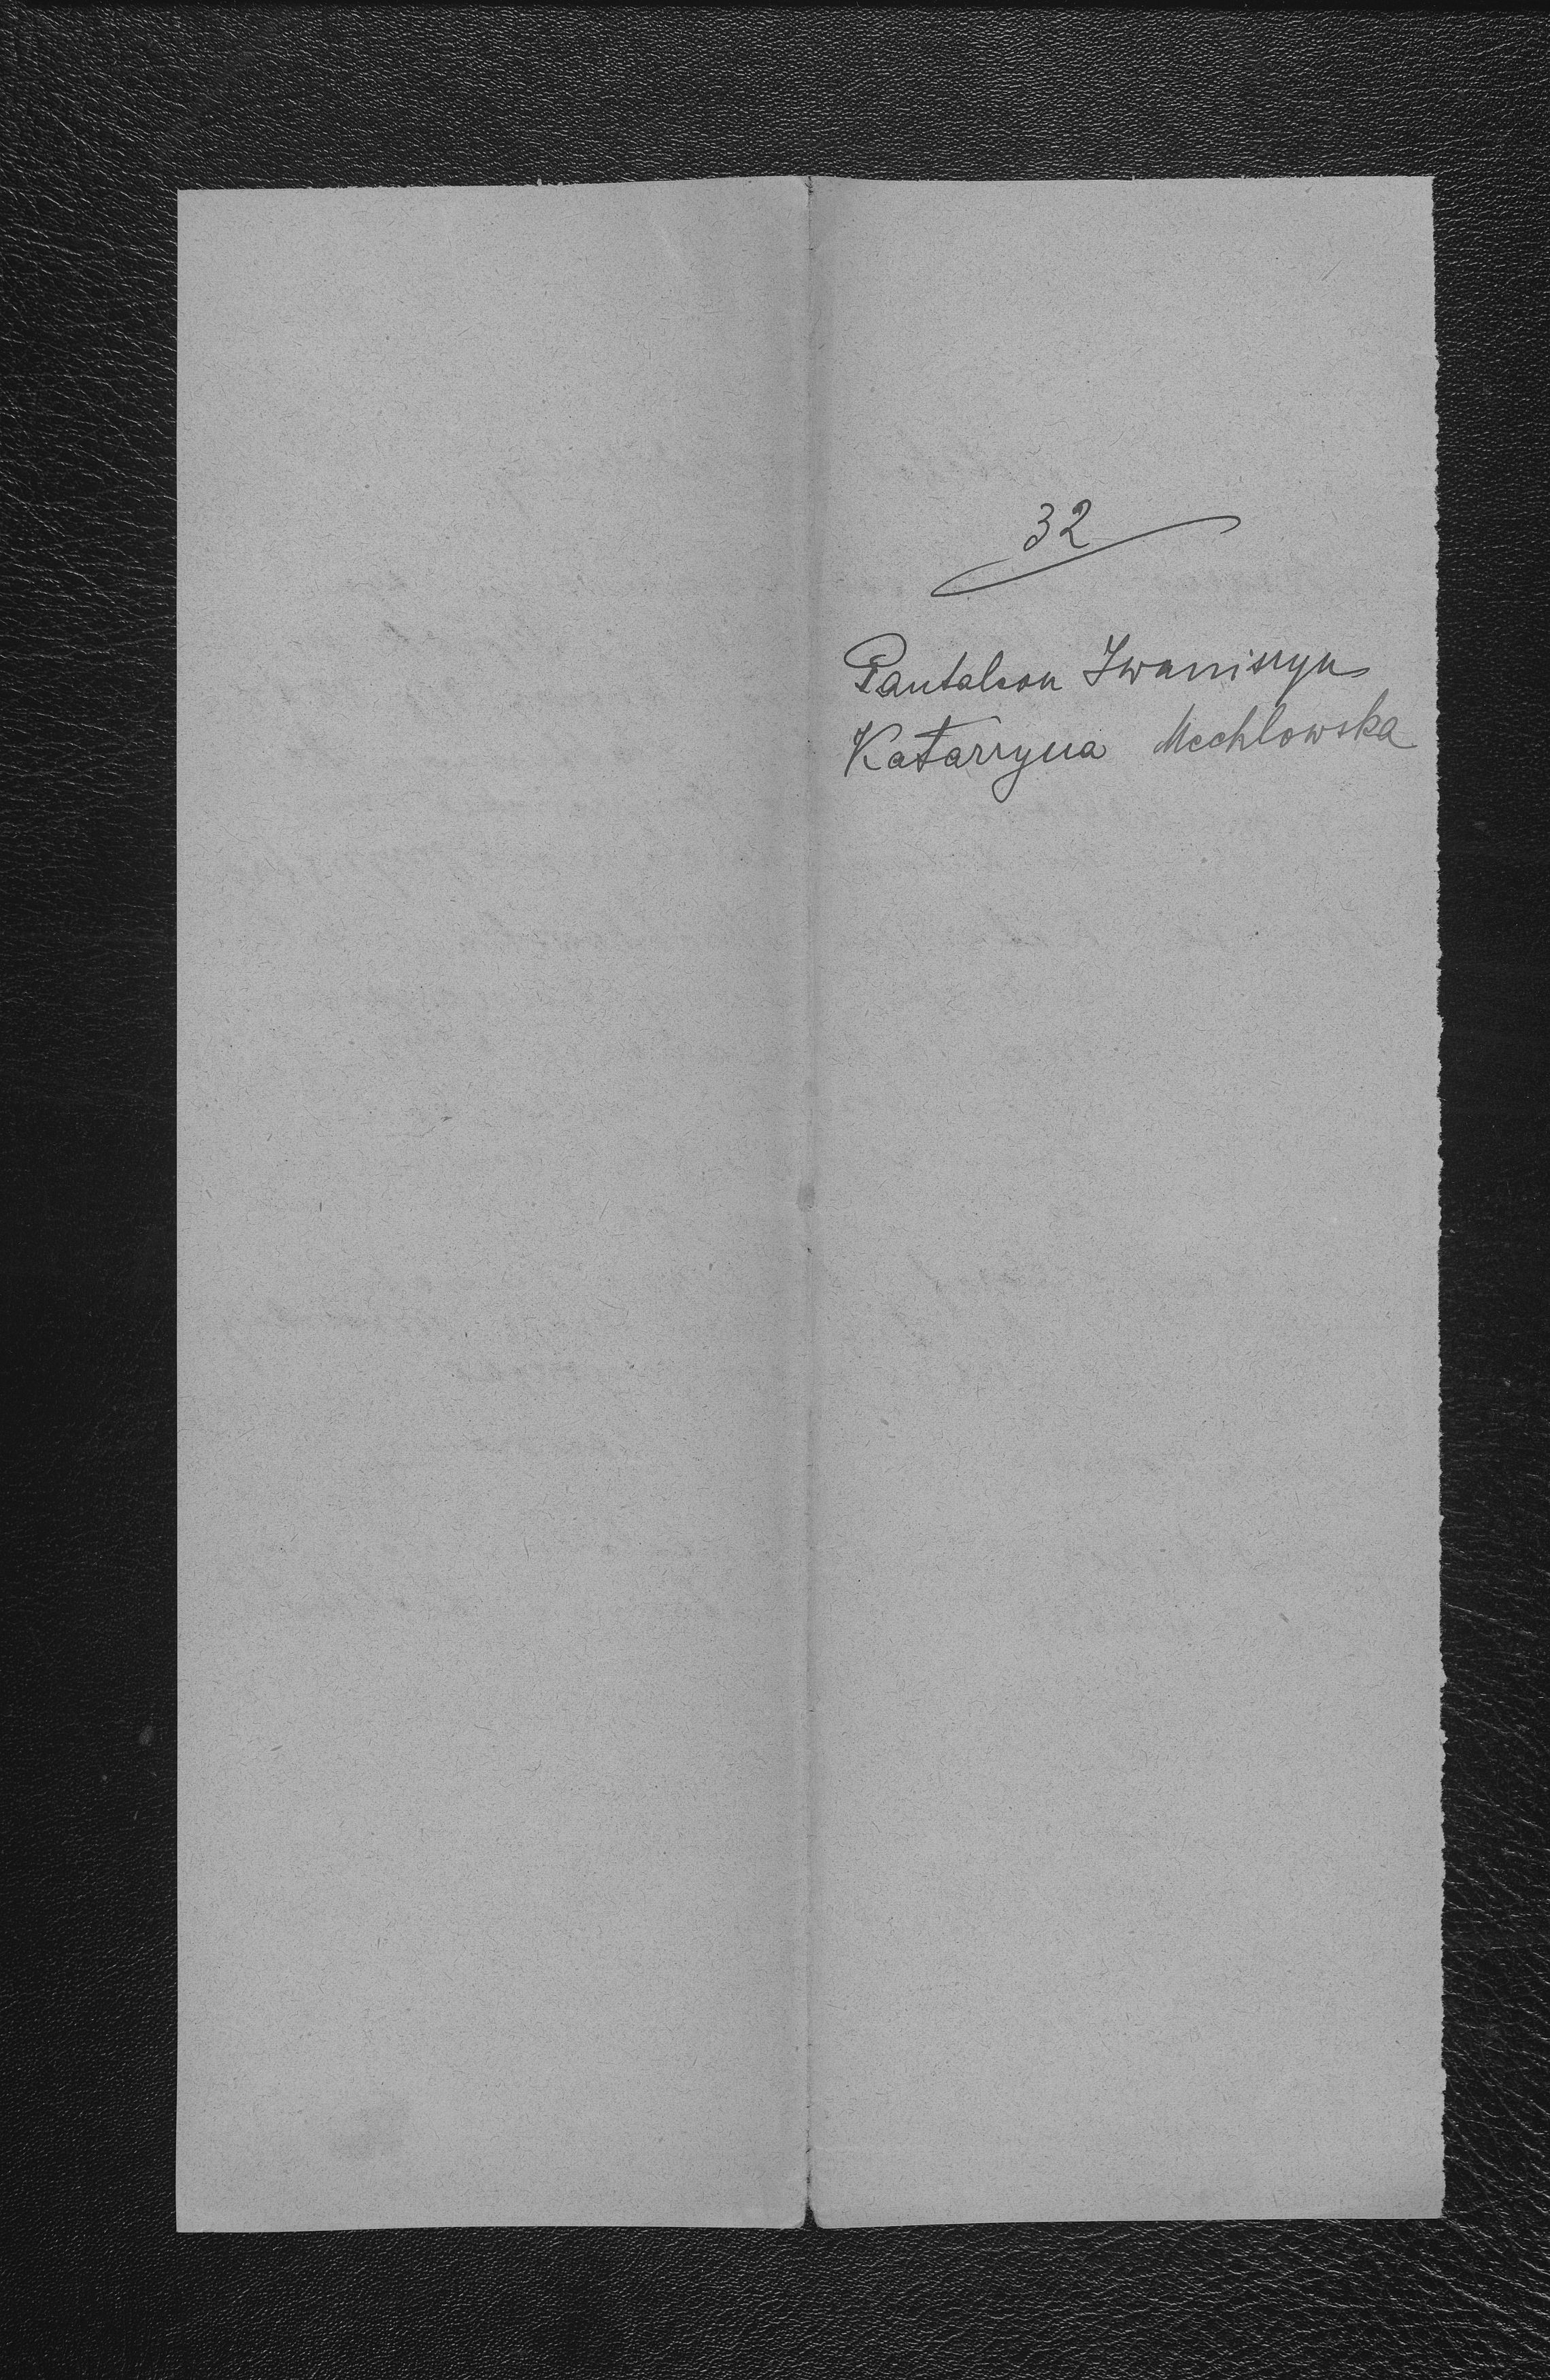 32
Pantaleon Iwaniszyn
Katarzyna Mechlowska